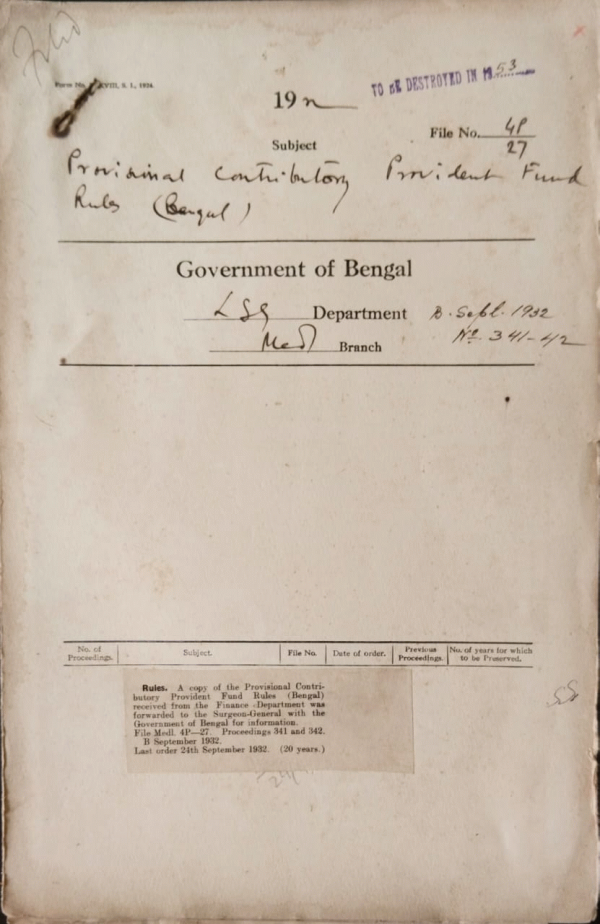 Filed
XVIII, S. 1., 1924.
TO BE DESTROYED IN 1953
19
File No. 4P/27
Subject
Provisional Contributory Provident Fund
Rules (Bengal)
Government of Bengal
LSG Department B. Sept. 1932
Medl Branch No. 341-42
No. of Proceedings. Subject. File No. Date of order. Previous Proceedings. No. of years for which to be Preserved.
Rules. A copy of the Provisional Contri-
butory Provident Fund Rules (Bengal)
received from the Finance Department was
forwarded to the Surgeon-General with the
Government of Bengal for information.
File Medl. 4P—27. Proceedings 341 and 342.
B September 1932.
Last order 24th September 1932. (20 years.)